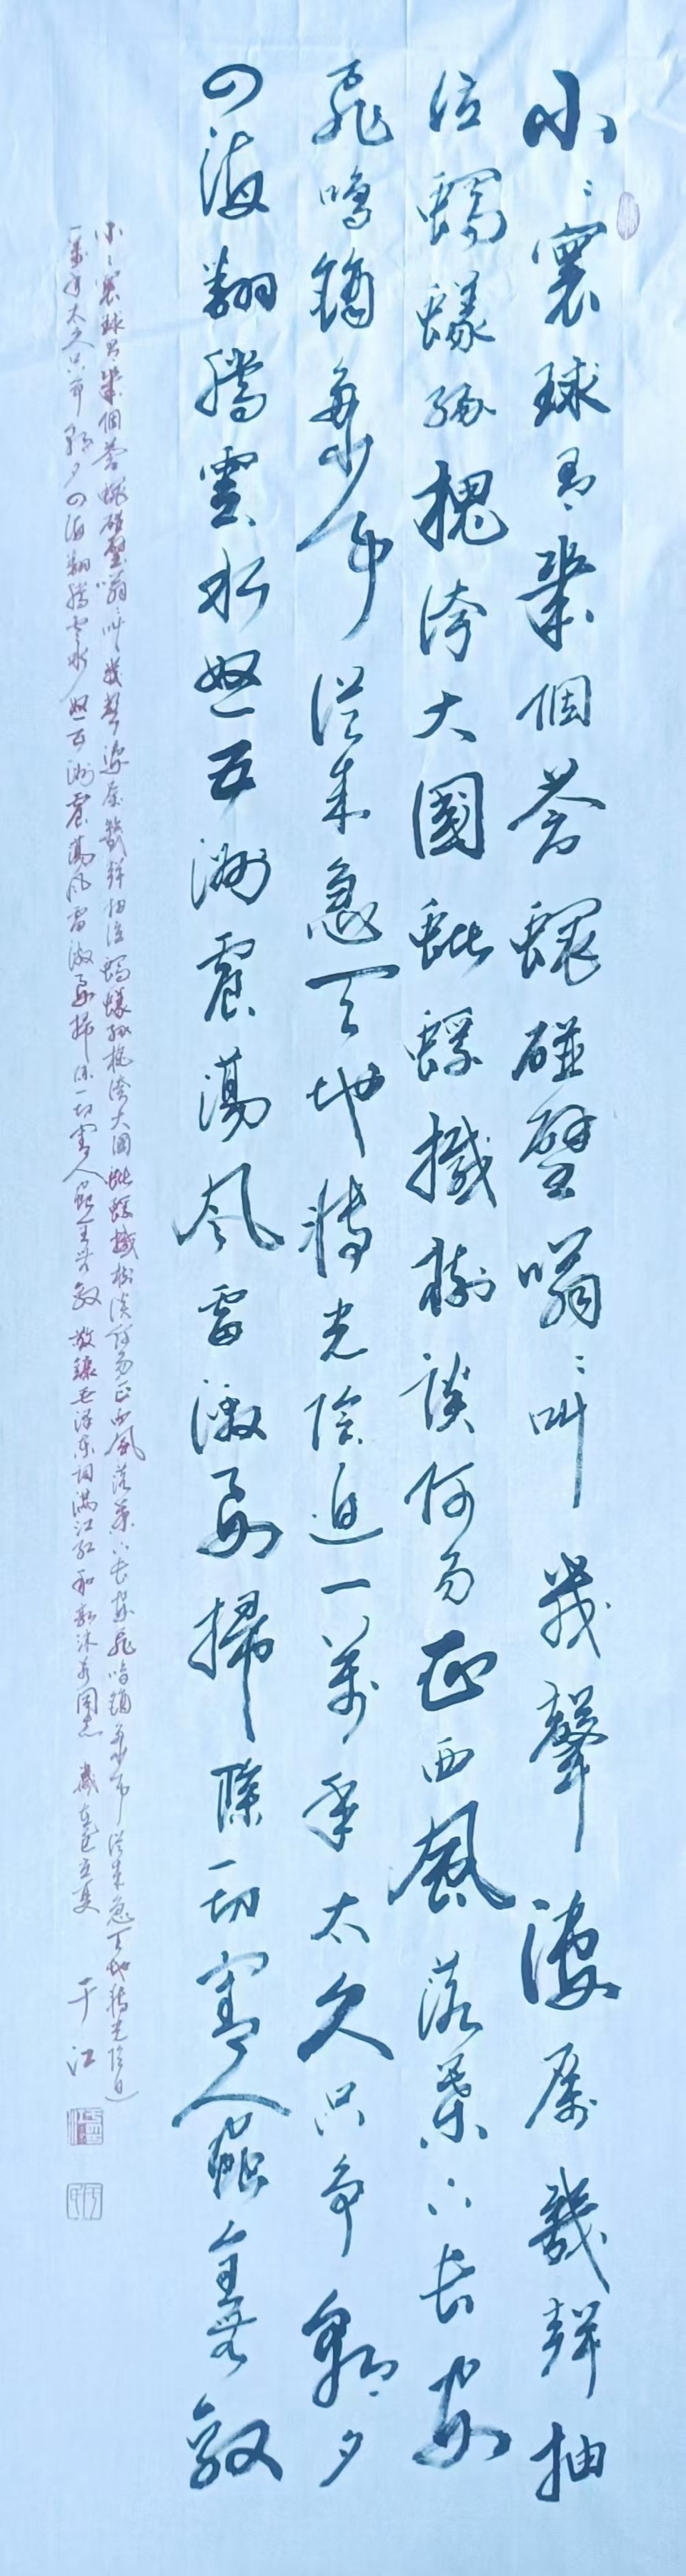 小〻寰球有幾個蒼蠅碰壁嗡〻叫幾聲凄厲幾聲抽
泣螞蟻緣槐誇大國蚍蜉撼樹談何易正西風落葉下長安
飛鳴鏑多少事從來急天地轉光陰迫一萬年太久只爭朝夕
四海翻騰雲水怒五洲震蕩風雷激要掃除一切害人蟲全無敵
小〻寰球有幾個蒼蠅碰壁嗡〻叫幾聲凄厲幾聲抽泣螞蟻緣槐誇大國蚍蜉撼樹談何易正西風落葉下長安飛鳴鏑多少事從來急天地轉光陰迫
一萬年太久只爭朝夕四海翻騰雲水怒五洲震蕩風雷激要掃除一切害人蟲全無敵 敬錄毛泽东词满江红和郭沫若同志 歲在乙巳立夏 于江